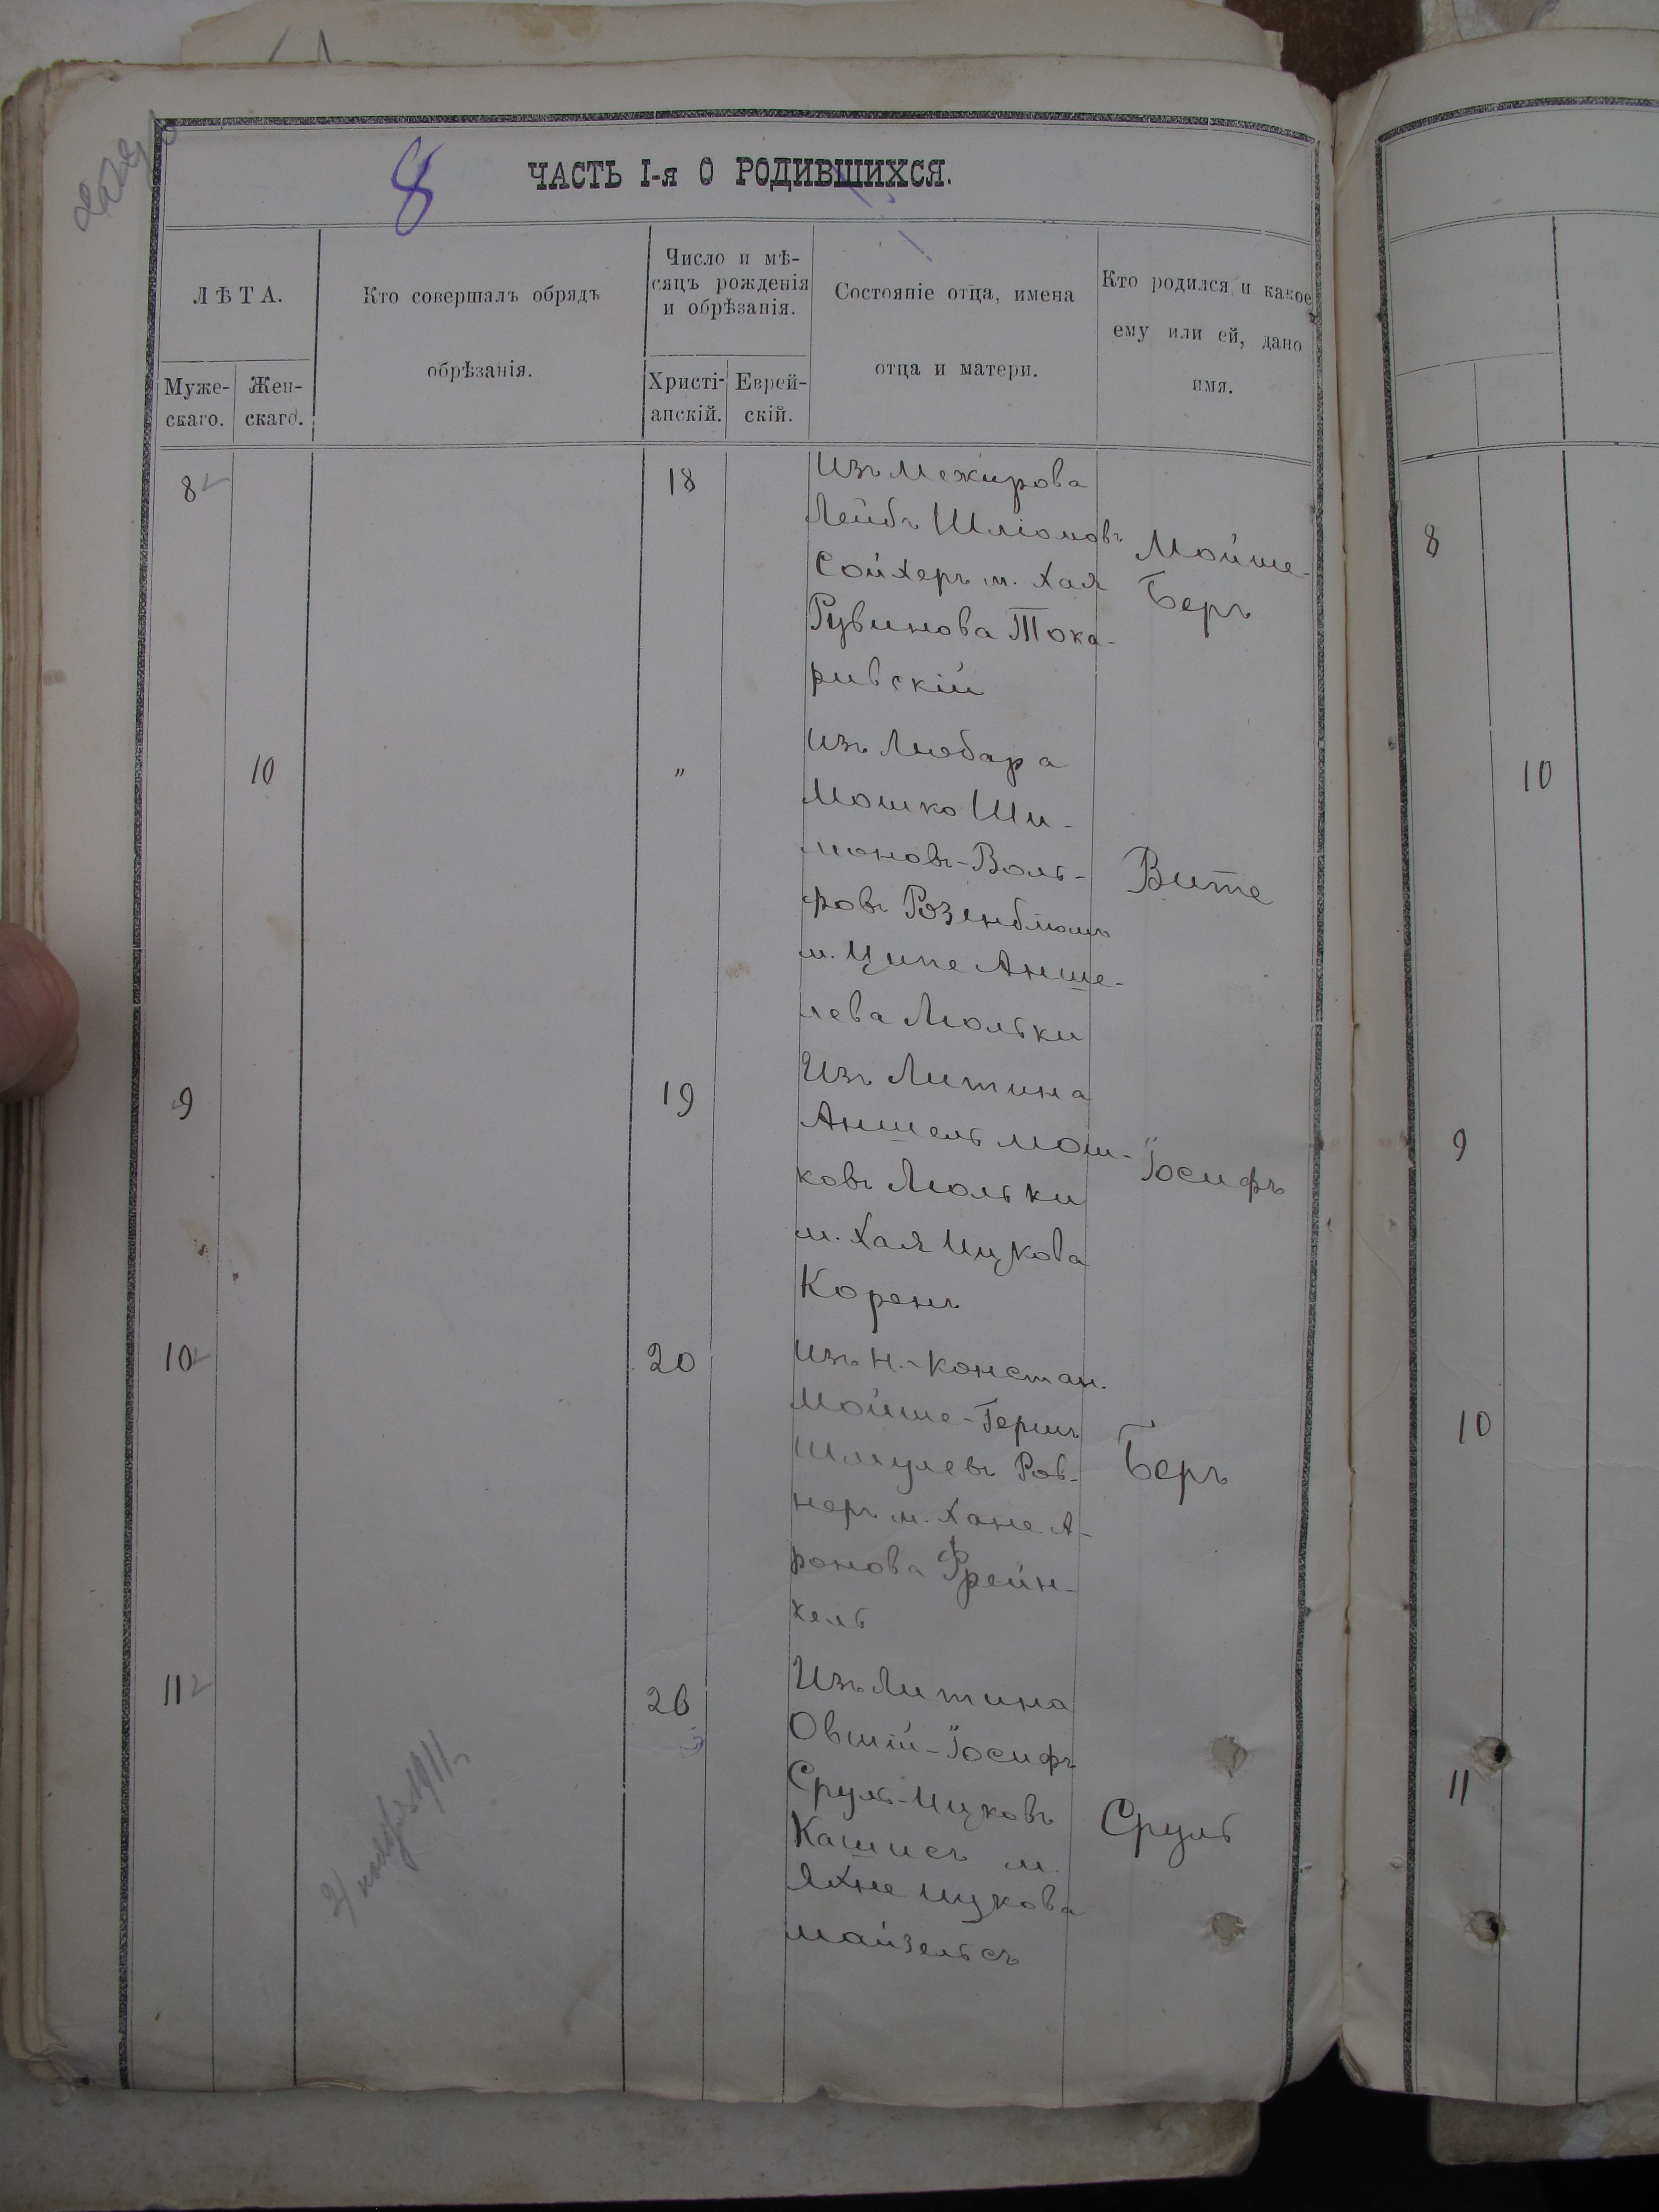 8
ЧАСТЬ I-я О РОДИВШИХСЯ.
ЛѢТА.
Муже-
скаго.
Жен-
скаго.
Кто совершалъ обрядъ
обрѣзанія.
Число и мѣ-
сяцъ рожденія
и обрѣзанія.
Христі-
анскій.
Еврей-
скій.
Состояніе отца, имена
отца и матери.
Кто родился и какое
ему или ей, дано
имя.
8
18
Изъ Межирова
Лейбъ Шліомовъ
Сойхеръ м. Хая
Рувинова Тока-
ривскій
Мойше-
Беръ
8
10
"
Изъ Любара
Мошко Ши-
моновъ-Воль-
фовъ Розенблюмъ
м. Ципе Анше-
лева Люльки
Вите
10
9
19
Изъ Литина
Аншель Мош-
ковъ Люльки
м. Хая Ицкова
Коренъ
Іосифъ
9
10
20
Изъ Н.-Констан.
Мойше-Гершъ
Шмулевъ Ров-
неръ м. Хане А-
ронова Фрейн-
кель
Беръ
10
11
26
Изъ Литина
Овшій-Іосифъ
Сруль-Ицковъ
Кашисъ м.
Яхне Ицкова
Майзельсъ
Сруль
11